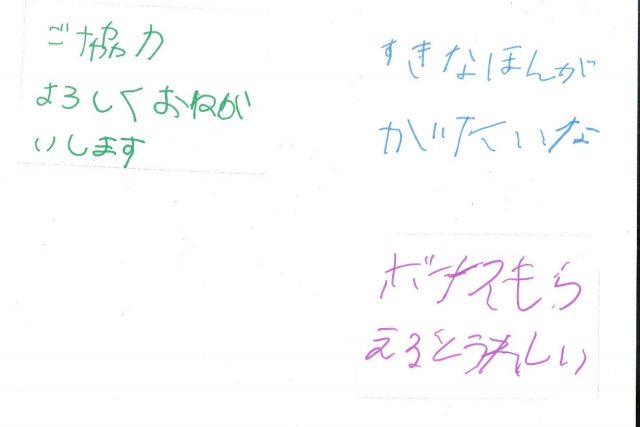 ご協力
よろしくおねがい
いします
すきなほんが
がいたいな
ボーナスもら
えるとうれしい